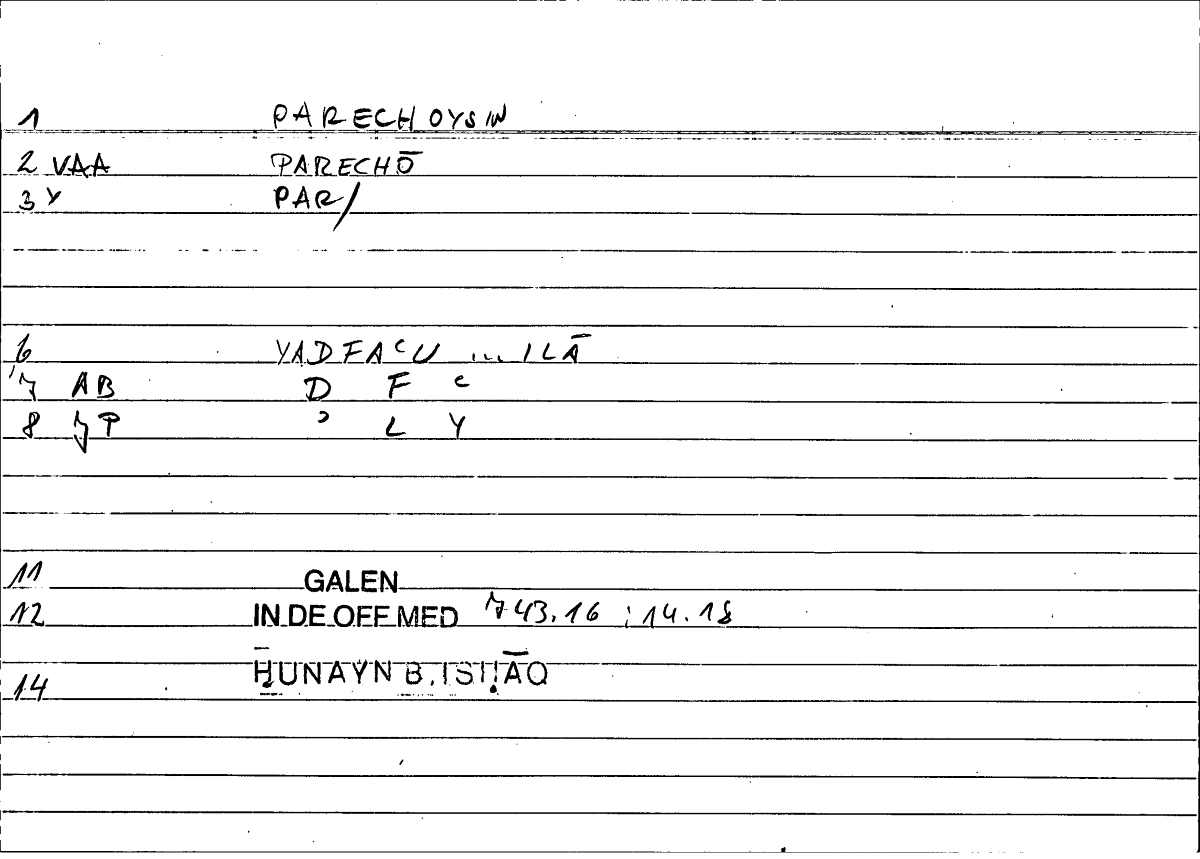 1 PARECHOYSIN
2 VAA PARECHŌ
3 Y PAR/
6 YADFAᶜU ... ILĀ
7 AB D F ᶜ
8 P ʾ L Y
11 GALEN
12 IN DE OFF MED 743.16 ; 14.18
14 ḤUNAYN B. ISḤĀQ